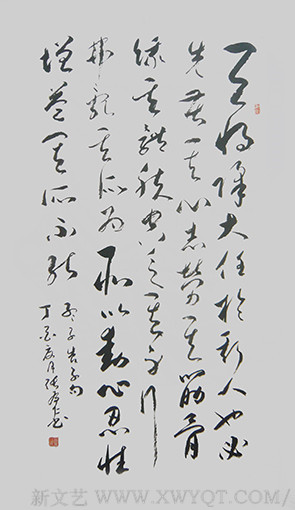 天将降大任於斯人也必
先苦其心志勞其筋骨
餓其體膚空乏其身行
拂亂其所為所以動心忍性
增益其所不能
孟子告子句
丁亥
新文艺/WWW.XWYQT.COM/